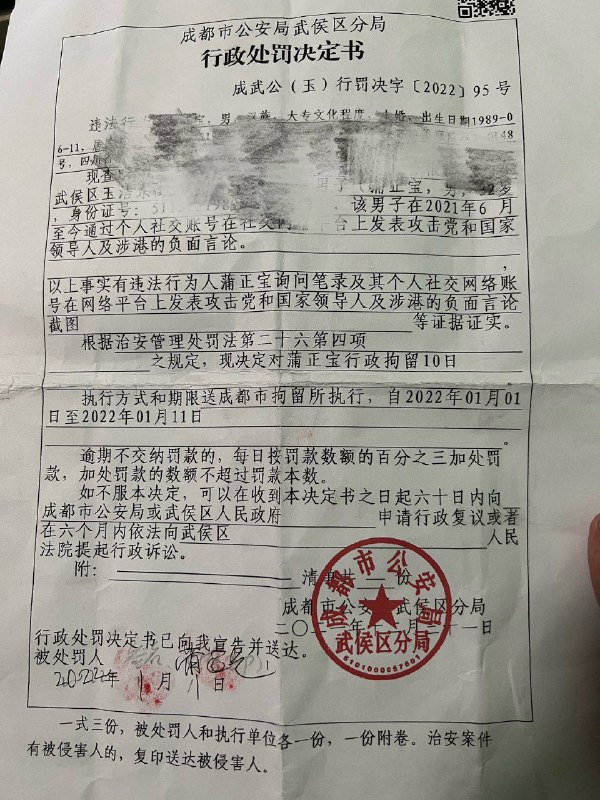 成都市公安局武侯区分局
行政处罚决定书
成武公（玉）行罚决字〔2022〕95号
违法行 男 族，大专文化程度， 婚，出生日期1989-0
6-11， 48
号，四川
现查
武侯区玉 男子（蒲正宝，男，32岁
，身份证号：51 198 该男子在2021年6月
至今通过个人社交账号在社交网 平台上发表攻击党和国家
领导人及涉港的负面言论。
，
以上事实有违法行为人蒲正宝询问笔录及其个人社交网络账
号在网络平台上发表攻击党和国家领导人及涉港的负面言论
截图 等证据证实。
根据治安管理处罚法第二十六第四项
之规定，现决定对蒲正宝行政拘留10日
。
执行方式和期限送成都市拘留所执行，自2022年01月01
日至2022年01月11日
。
逾期不交纳罚款的，每日按罚款数额的百分之三加处罚
款，加处罚款的数额不超过罚款本数。
如不服本决定，可以在收到本决定书之日起六十日内向
成都市公安局或武侯区人民政府 申请行政复议或者
在六个月内依法向武侯区 人民
法院提起行政诉讼。
附： 清单共 份
成都市公安 武侯区分局
二〇二 年十 月三十一日
成都市公安局
武侯区分局
5101000057601
行政处罚决定书已向我宣告并送达。
被处罚人
2022年 1月 1日
一式三份，被处罚人和执行单位各一份，一份附卷。治安案件
有被侵害人的，复印送达被侵害人。